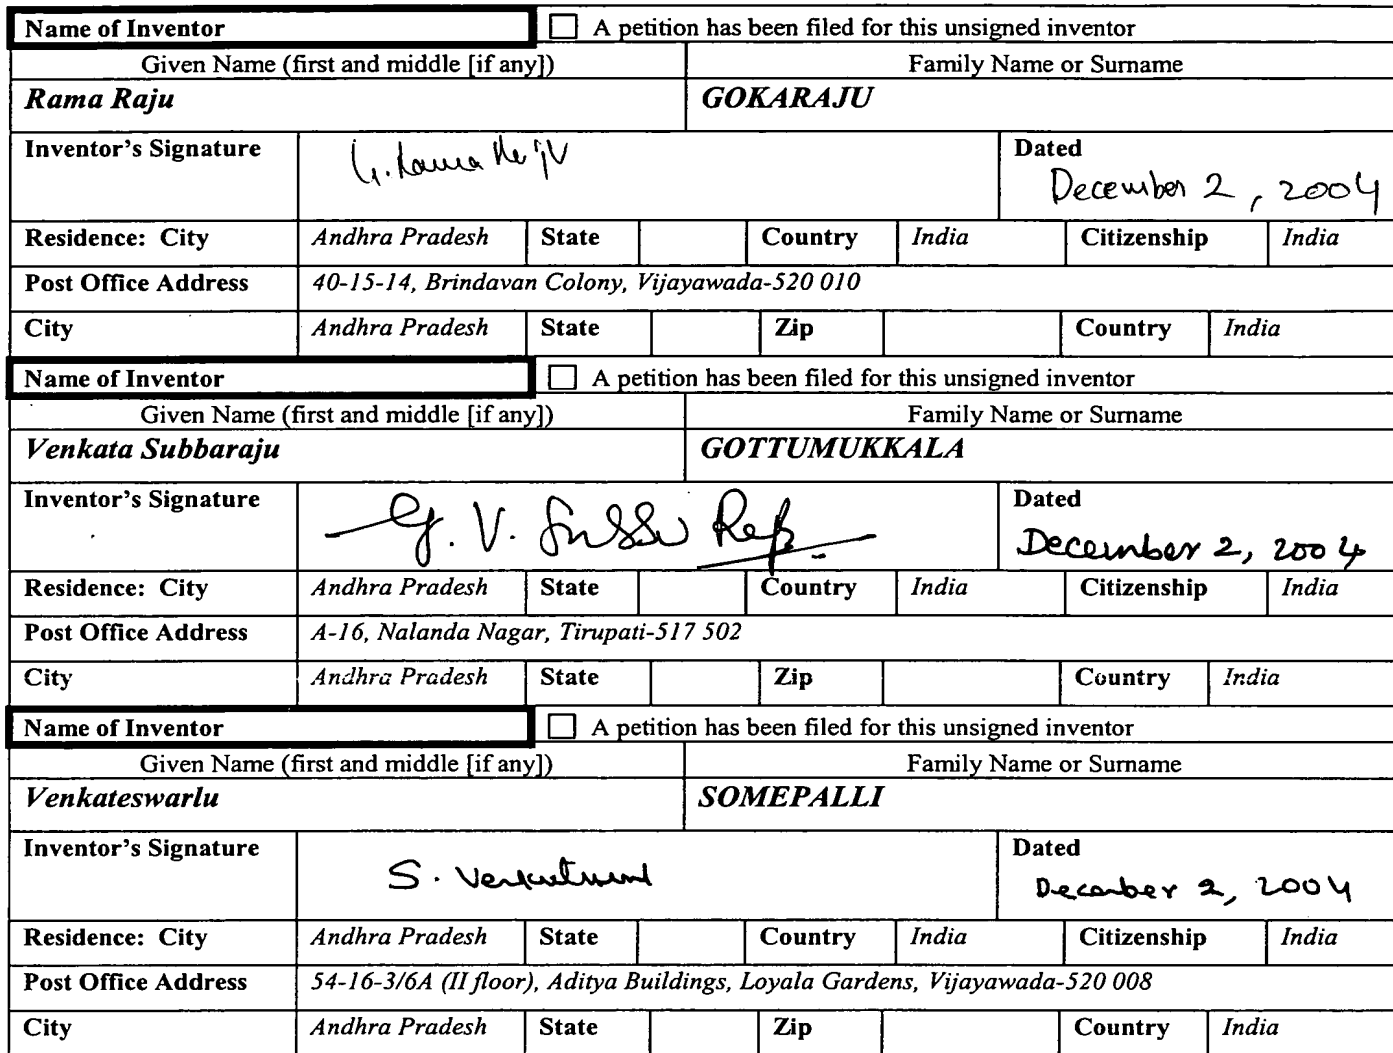 Name of Inventor ☐ A petition has been filed for this unsigned inventor
Given Name (first and middle [if any]) Family Name or Surname
Rama Raju GOKARAJU
Inventor's Signature G. Rama Raju Dated
December 2, 2004
Residence: City Andhra Pradesh State Country India Citizenship India
Post Office Address 40-15-14, Brindavan Colony, Vijayawada-520 010
City Andhra Pradesh State Zip Country India
Name of Inventor ☐ A petition has been filed for this unsigned inventor
Given Name (first and middle [if any]) Family Name or Surname
Venkata Subbaraju GOTTUMUKKALA
Inventor's Signature G. V. Subba Raju Dated
December 2, 2004
Residence: City Andhra Pradesh State Country India Citizenship India
Post Office Address A-16, Nalanda Nagar, Tirupati-517 502
City Andhra Pradesh State Zip Country India
Name of Inventor ☐ A petition has been filed for this unsigned inventor
Given Name (first and middle [if any]) Family Name or Surname
Venkateswarlu SOMEPALLI
Inventor's Signature S. Dated
December 2, 2004
Residence: City Andhra Pradesh State Country India Citizenship India
Post Office Address 54-16-3/6A (II floor), Aditya Buildings, Loyala Gardens, Vijayawada-520 008
City Andhra Pradesh State Zip Country India